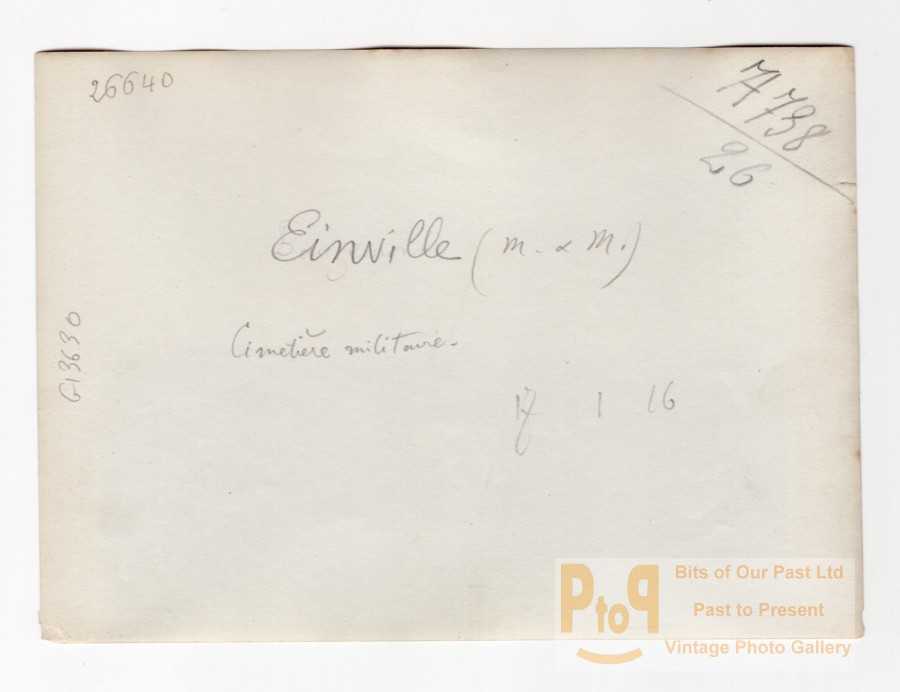 26640
7A 738
26
Einville (M. & M.)
Cimetière militaire.
G13630
17 1 16
PtoP
Bits of Our Past Ltd
Past to Present
Vintage Photo Gallery